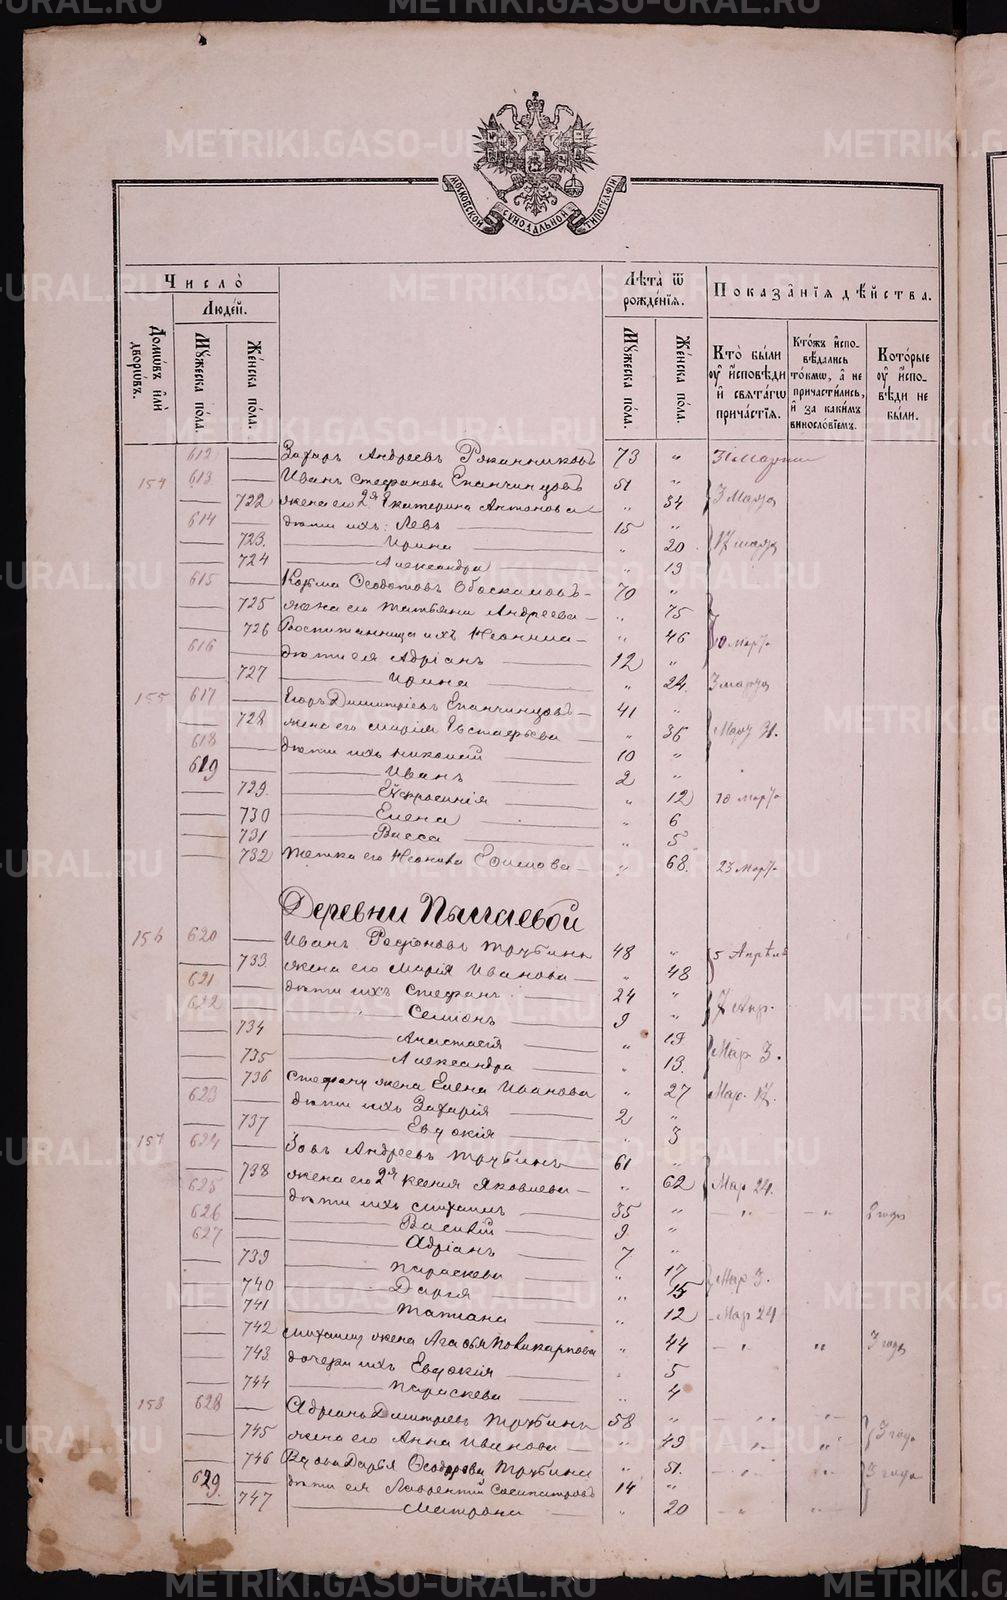 МОСКОВСКОЙ СѴНОДАЛЬНОЙ ТИПОГРАФІИ
Число̀
Люде́й.
Домѡ́въ и҆лѝ дворѡ́въ.
Мꙋ́жеска по́ла.
Же́нска по́ла.
Лѣ́та ѿ рожде́нїѧ.
Мꙋ́жеска по́ла.
Же́нска по́ла.
Показа̑нїѧ дѣ́йства.
Кто̀ бы́ли ᲂу҆ и҆́сповѣди и҆ свѧта́гѡ прича́стїѧ.
Кто́жъ и҆спо-вѣ́дались то́кмѡ, а҆ не причасти́лись, и҆ за каки́мъ виносло́вїемъ.
Кото́рые ᲂу҆ и҆спо-вѣди не бы́ли.
612 Захаръ Андреевъ 73 " 31 Марта
154 613 Иванъ Стефановъ Епанчинцовъ 51 "
722 жена его 2я Екатерина Антонова " 54 3 Марта
614 дѣти ихъ: Левъ 15 "
723. Ирина " 20 17 марта
724 Александра " 19
615 Козма Ѳеодотовъ 70 "
725 жена его Татьяна Андреева " 75
726 Воспитанница ихъ Неонила " 46 10 мар
616 дѣти ея Адріанъ 12 "
727 Ирина " 24 3 марта
155 617 Егоръ Димитріевъ Епанчинцовъ 41 "
728 жена его Марія Евстафьева " 36 Мар 31.
618 дѣти ихъ Николай 10 "
619 Иванъ 2 "
729. Ефросинія " 12 10 мар
730 Елена " 6
731 Васса " 5
732 тетка его Неонила Ефимова " 68. 23 мар
Деревни
156 620 Иванъ Родіоновъ Трубинъ 48 " 5 Апрѣля
733 жена его Марія Иванова 48
621 дѣти ихъ Стефанъ 24 "
622 Семіонъ 9 " 7 Апр.
734 Анастасія " 19
735 Александра " 13 Мар 3.
736 Стефану жена Елена Иванова " 27 Мар. 17.
623 дѣти ихъ Захарія 2 "
737 Евдокія " 3
157 624 Андреевъ Трубинъ 61 "
738 жена его 2я Ксения Яковлева " 62 Мар 24.
625 дѣти ихъ Михаилъ 35 " " " 2 года
626 Василій 9 "
627 Адріанъ 7 "
739 Параскева " 17
740 Дарія " 15 Мар 3.
741 Татіана " 12 Мар 24
742 Михаилу жена Агафья Поликарпова " 44 " " 3 года
743 дочери ихъ Евдокія " 5
744 Параскева " 4
158 628 Адріанъ Дмитріевъ Трубинъ 58 " " "
745 жена его Анна Иванова " 49 " " 3 года
746 Вдова Дарья Ѳеодорова Трубина " 51. " " 3 года
629. дѣти ея Лаврентій 14 "
747 Матрона 20 " "
METRIKI.GASO-URAL.RU